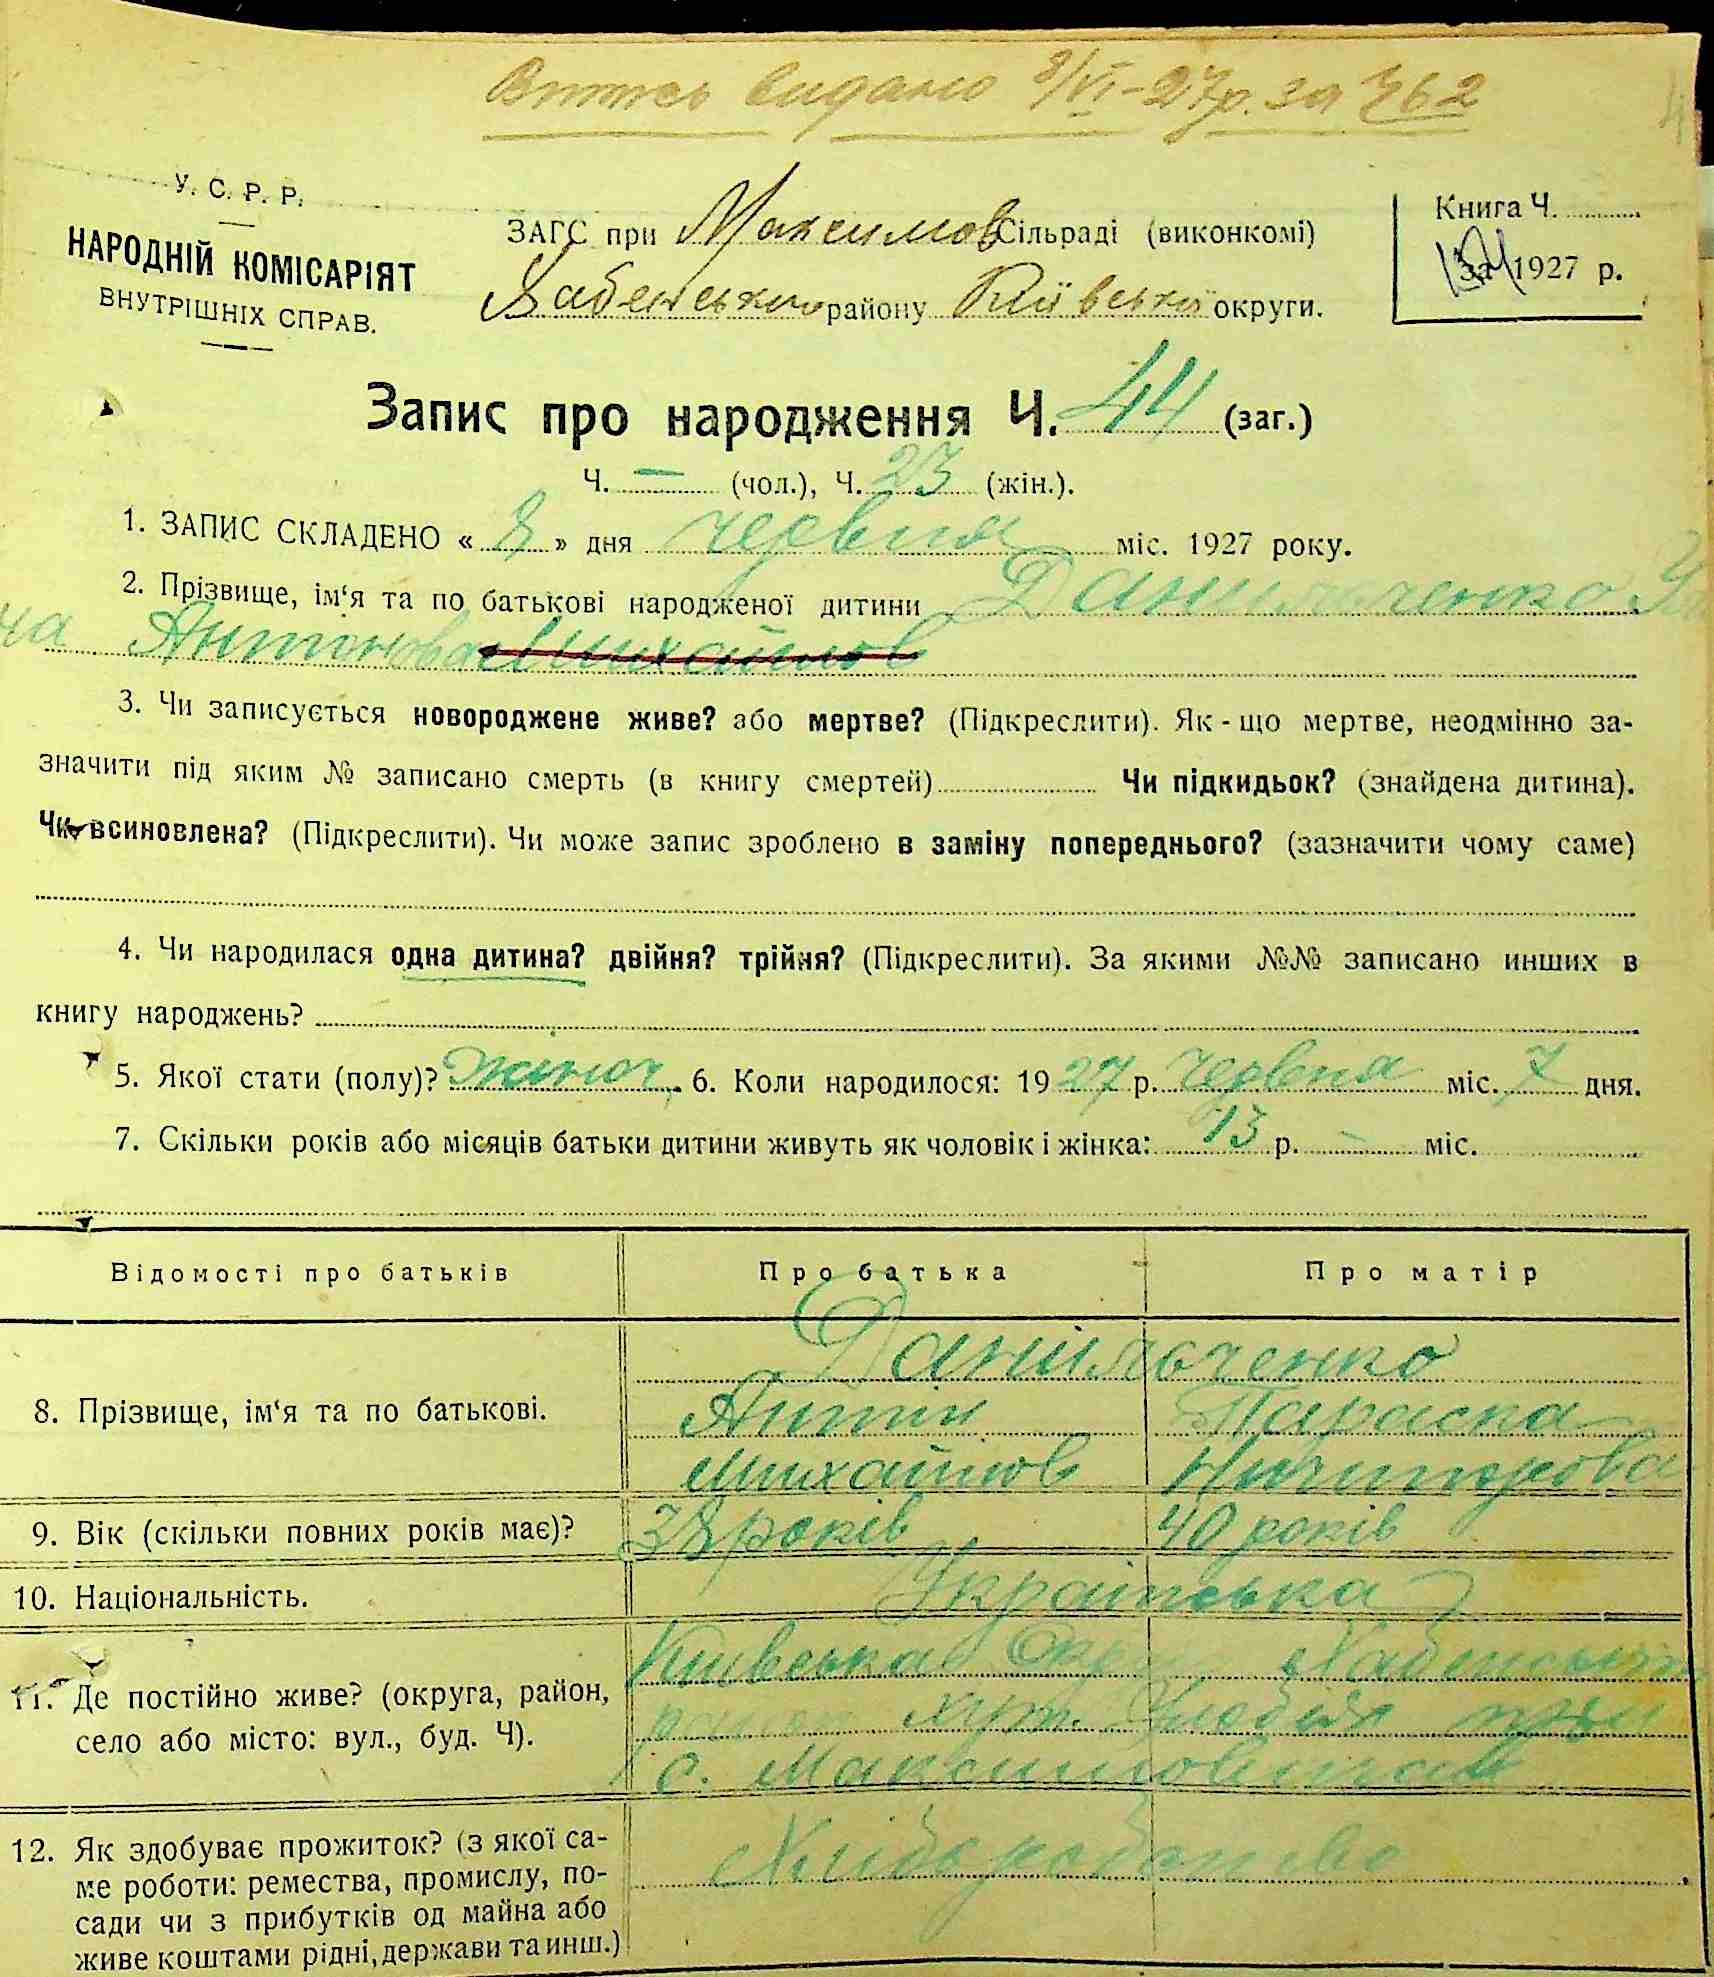 Витяг видано 8/VI-27р. за № 62
У. С. Р. Р.
НАРОДНІЙ КОМІСАРІЯТ
ВНУТРІШНІХ СПРАВ.
ЗАГС при Максимов Сільраді (виконкомі)
Хабенського району Київської округи.
Книга Ч.
за 1927 р.
Запис про народження Ч. 44 (заг.)
Ч. — (чол.), Ч. 23 (жін.).
1. ЗАПИС СКЛАДЕНО « 8 » дня червня міс. 1927 року.
2. Прізвище, ім‘я та по батькові народженої дитини Данильченко
на Антонова Михайлов
3. Чи записується новороджене живе? або мертве? (Підкреслити). Як - що мертве, неодмінно за-
значити під яким № записано смерть (в книгу смертей) Чи підкидьок? (знайдена дитина).
Чи всиновлена? (Підкреслити). Чи може запис зроблено в заміну попереднього? (зазначити чому саме)
4. Чи народилася одна дитина? двійня? трійня? (Підкреслити). За якими №№ записано инших в
книгу народжень?
5. Якої стати (полу)? жіноч. 6. Коли народилося: 1927 р. червня міс. 7 дня.
7. Скільки років або місяців батьки дитини живуть як чоловік і жінка: 13 р. — міс.
Відомості про батьків Про батька Про матір
Данильченко
8. Прізвище, ім‘я та по батькові. Антін Параска
Михайлов Ничипорова
9. Вік (скільки повних років має)? 38 років 40 років
10. Національність. Українська
Київська Окр Хабенський
11. Де постійно живе? (округа, район, район хут.
село або місто: вул., буд. Ч). с. Максимовичах
12. Як здобуває прожиток? (з якої са-
ме роботи: ремества, промислу, по- Хліборобство
сади чи з прибутків од майна або
живе коштами рідні, держави та инш.)